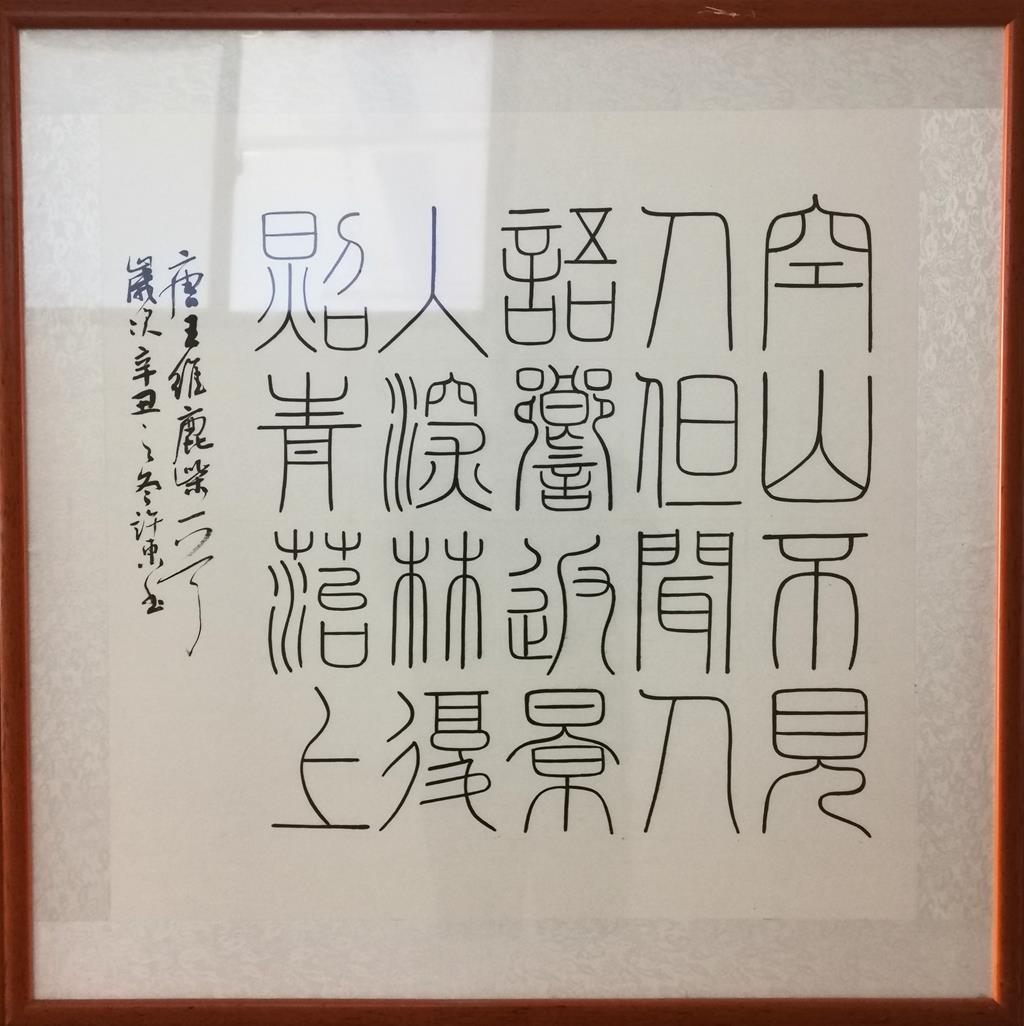 空山不見
人但聞人
語響返景
入深林復
照青苔上
唐王維鹿柴
歲次辛丑之冬許東書